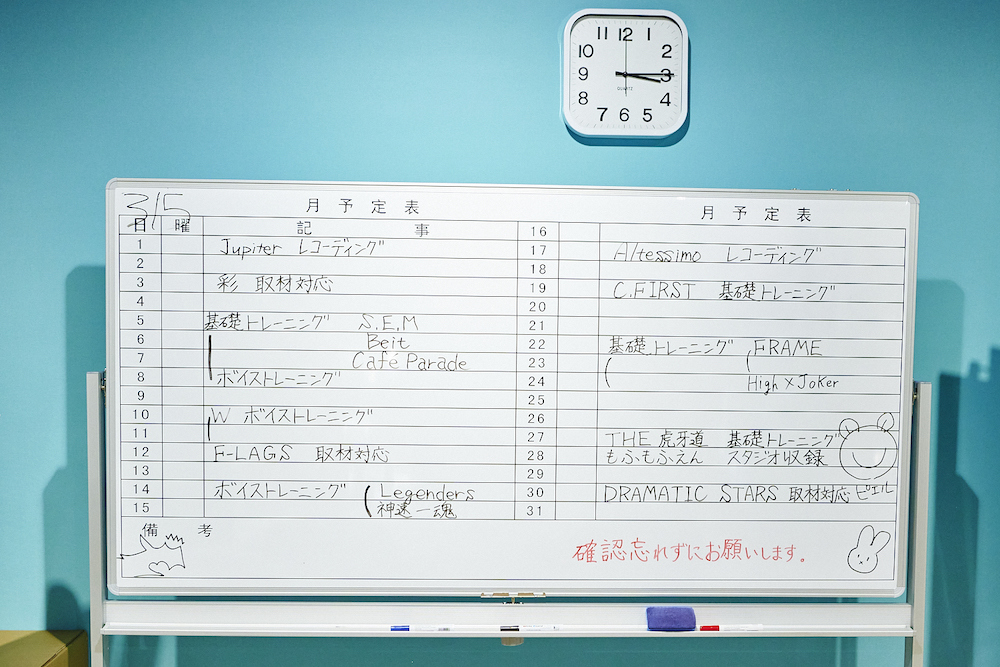 11 12 1
10 2
9 3
8 4
7 6 5
QUARTZ
3/5
月予定表
日 曜 記事
1 Jupiter レコーディング
2
3 彩 取材対応
4
5 基礎トレーニング S.E.M
6 Beit
7 Café Parade
8 ボイストレーニング
9
10 W ボイストレーニング
11
12 F-LAGS 取材対応
13
14 ボイストレーニング Legenders
15 神速一魂
備考
月予定表
16
17 Altessimo レコーディング
18
19 C.FIRST 基礎トレーニング
20
21
22 基礎トレーニング FRAME
23
24 High×Joker
25
26
27 THE 虎牙道 基礎トレーニング
28 もふもふえん スタジオ収録
29
30 DRAMATIC STARS 取材対応 ピエール
31
確認忘れずにお願いします。